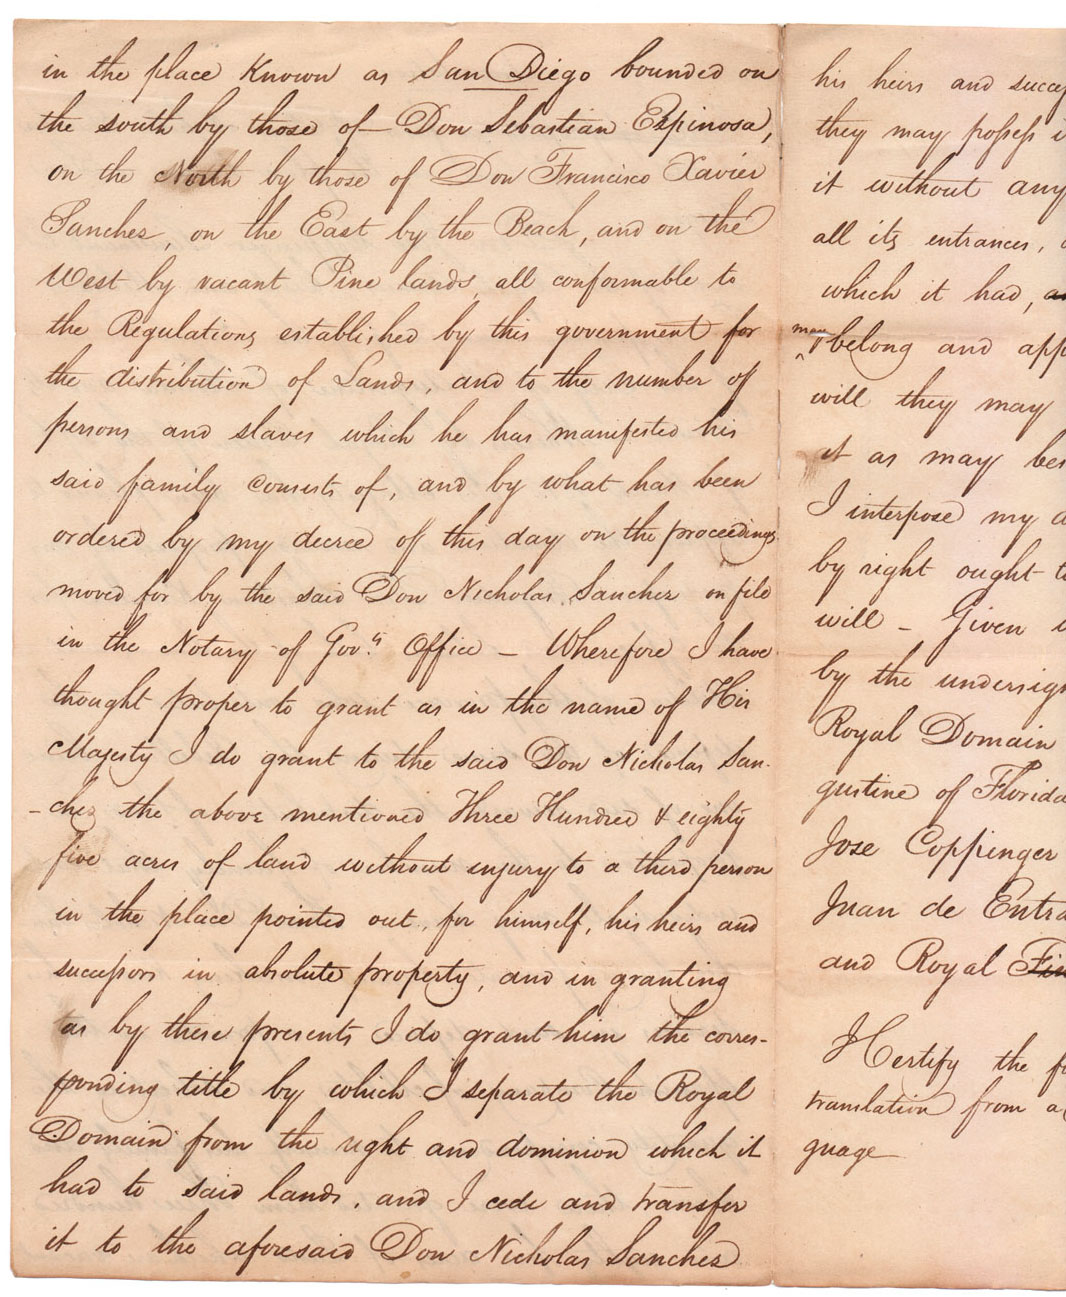 in the place Known as San Diego bounded on
the south by those of Don Sebastian Espinosa,
on the North by those of Don Francisco Xavier
Sanchez, on the East by the Beach, and on the
West by vacant Pine lands, all conformable to
the Regulations established by this government for
the distribution of Lands, and to the number of
persons and slaves which he has manifested his
said family consists of, and by what has been
ordered by my decree of this day on the proceedings
moved for by the said Don Nicholas Sanchez on file
in the Notary of Govt. Office - Wherefore I have
thought proper to grant as in the name of His
Majesty I do grant to the said Don Nicholas San-
-chez the above mentioned Three Hundred & eighty
five acres of land without injury to a third person
in the place pointed out, for himself, his heirs and
successors in absolute property, and in granting
as by these presents I do grant him the corres-
ponding title by which I separate the Royal
Domain from the right and dominion which it
had to said lands. and I cede and transfer
it to the aforesaid Don Nicholas Sanchez
his heirs and succes
they may possess i
it without any
all its entrances,
which it had,
may belong and app
will they may
it as may bes
I interpose my a
by right ought t
will - Given
by the undersign
Royal Domain
gustine of Florida
Jose Coppinger
Juan de Entra
and Royal Fin
I Certify the f
translation from a
guage